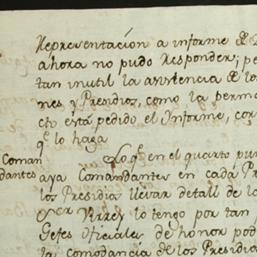 Representacion a informe de
ahora no pudo responder; pe
tan inutil la asistencia de los
nes y Presidios, como la perma
cto está pedido el Informe, cor
qe lo haga
Coman
dantes
Lo qe en el quarto pun
aya Comandantes en cada Pre
los Presidia llevar detall de lo
Virrey lo tengo por tan
Gefes oficiales de honor pod
la comodancia de los Presidia